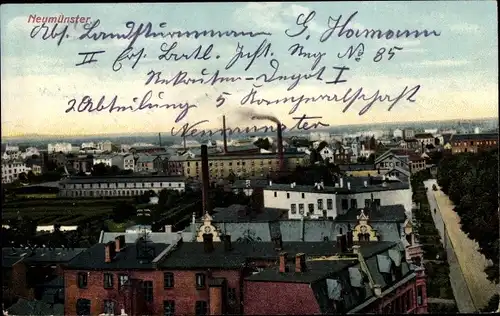 Neumünster
Abs. Landsturmmann G. Hamann
II Ers. Batl. Inft. Reg No. 85
Rekruten-Depot I
2 Abteilung 5 Kameralschaft
Neumünster